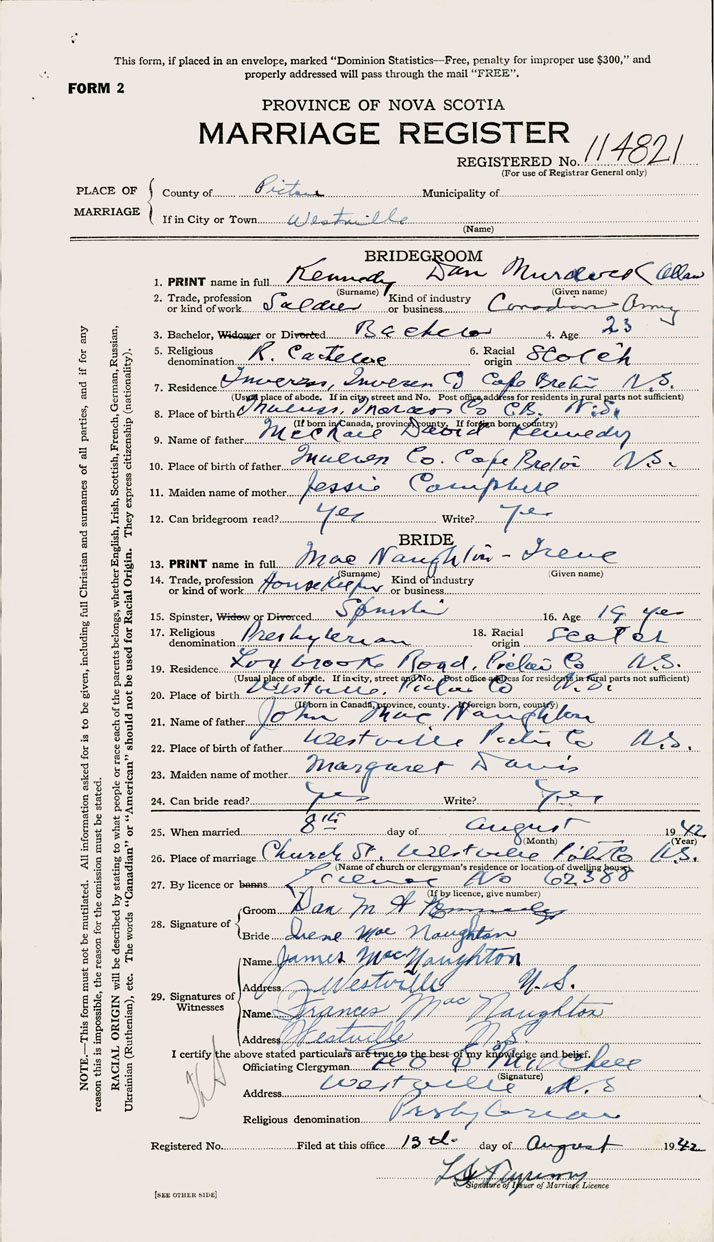 This form, if placed in an envelope, marked "Dominion Statistics—Free, penalty for improper use $300," and
properly addressed will pass through the mail "FREE".
FORM 2
PROVINCE OF NOVA SCOTIA
MARRIAGE REGISTER
REGISTERED No. 114821
(For use of Registrar General only)
PLACE OF MARRIAGE
County of Pictou Municipality of
If in City or Town Westville
(Name)
BRIDEGROOM
1. PRINT name in full Kennedy Dan Murdock Allan
(Surname) (Given name)
2. Trade, profession or kind of work Soldier Kind of industry or business Canadian Army
3. Bachelor, Widower or Divorced Bachelor 4. Age 23
5. Religious denomination R. Catholic 6. Racial origin Scotch
7. Residence Inverness, Inverness Co Cape Breton N.S.
(Usual place of abode. If in city, street and No. Post office address for residents in rural parts not sufficient)
8. Place of birth Inverness Co C.B. N.S.
(If born in Canada, province, county. If foreign born, country)
9. Name of father David Kennedy
10. Place of father Co. Cape Breton N.S.
11. Maiden name of mother Jessie Campbell
12. Can bridegroom read? Yes Write? Yes
BRIDE
13. PRINT name in full Mac Naughton - Irene
(Surname) (Given name)
14. Trade, profession or kind of work Housekeeper Kind of industry or business
15. Spinster, Widow or Divorced Spinster 16. Age 19 yrs
17. Religious denomination Presbyterian 18. Racial origin Scotch
19. Residence Road, Pictou Co N.S.
(Usual place of abode. If in city, street and No. Post office address for residents in rural parts not sufficient)
20. Place of birth Westville, Pictou Co N.S.
(If born in Canada, province, county. If foreign born, country)
21. Name of father John Mac Naughton
22. Place of birth of father Westville Pictou Co N.S.
23. Maiden name of mother Margaret Davis
24. Can bride read? Yes Write? Yes
25. When married 8th day of August 1942
(Month) (Year)
26. Place of marriage Church St. Westville Pictou Co N.S.
(Name of church or clergyman's residence or location of dwelling house)
27. By licence or banns License No 62388
(If by licence, give number)
28. Signature of
Groom Dan M A Kennedy
Bride Irene Mac Naughton
29. Signatures of Witnesses
Name James MacNaughton
Address Westville N.S.
Name Frances Mac Naughton
Address Westville N.S.
I certify the above stated particulars are true to the best of my knowledge and belief.
Officiating Clergyman
(Signature)
Address Westville N.S
Religious denomination Presbyterian
Registered No. Filed at this office 13th day of August 1942
Signature of Issuer of Marriage Licence
[SEE OTHER SIDE]
NOTE.—This form must not be mutilated. All information asked for is to be given, including full Christian and surnames of all parties, and if for any
reason this is impossible, the reason for the omission must be stated.
RACIAL ORIGIN will be described by stating to what people or race each of the parents belongs, whether English, Irish, Scottish, French, German, Russian,
Ukrainian (Ruthenian), etc. The words "Canadian" or "American" should not be used for Racial Origin. They express citizenship (nationality).